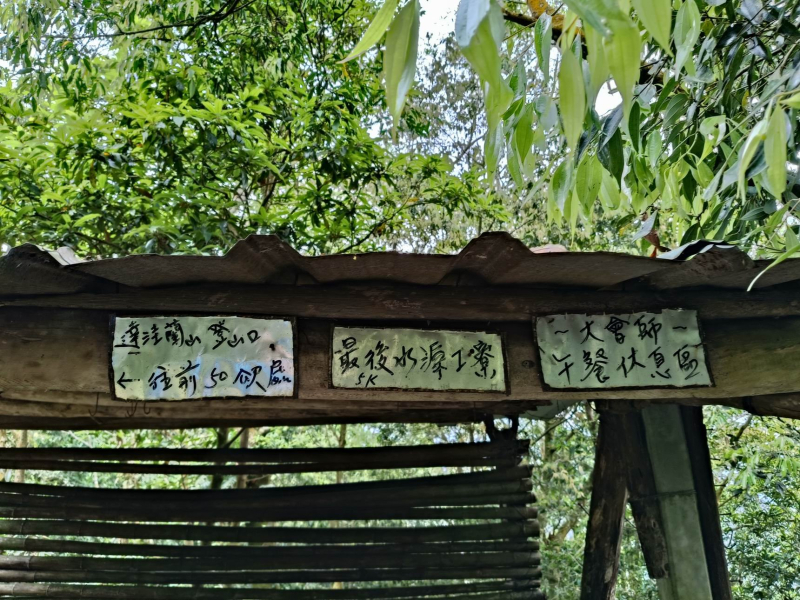 達注蘭山 登山口,
← 往前50欣處
最後水源工寮
5K
~大會師~
午餐休息區